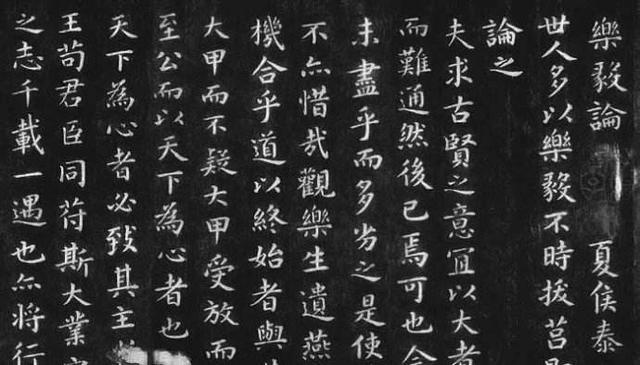 樂毅論 夏侯泰
世人多以樂毅不時拔莒
論之
夫求古賢之意宜以大者
而難通然後已焉可也
未盡乎而多劣之是使
不亦惜哉觀樂生遺燕
機合乎道以終始者與
大甲而不疑大甲受放而
至公而以天下為心者也
天下為心者必致其主
王苟君臣同符斯大業
之志千載一遇也亦將行